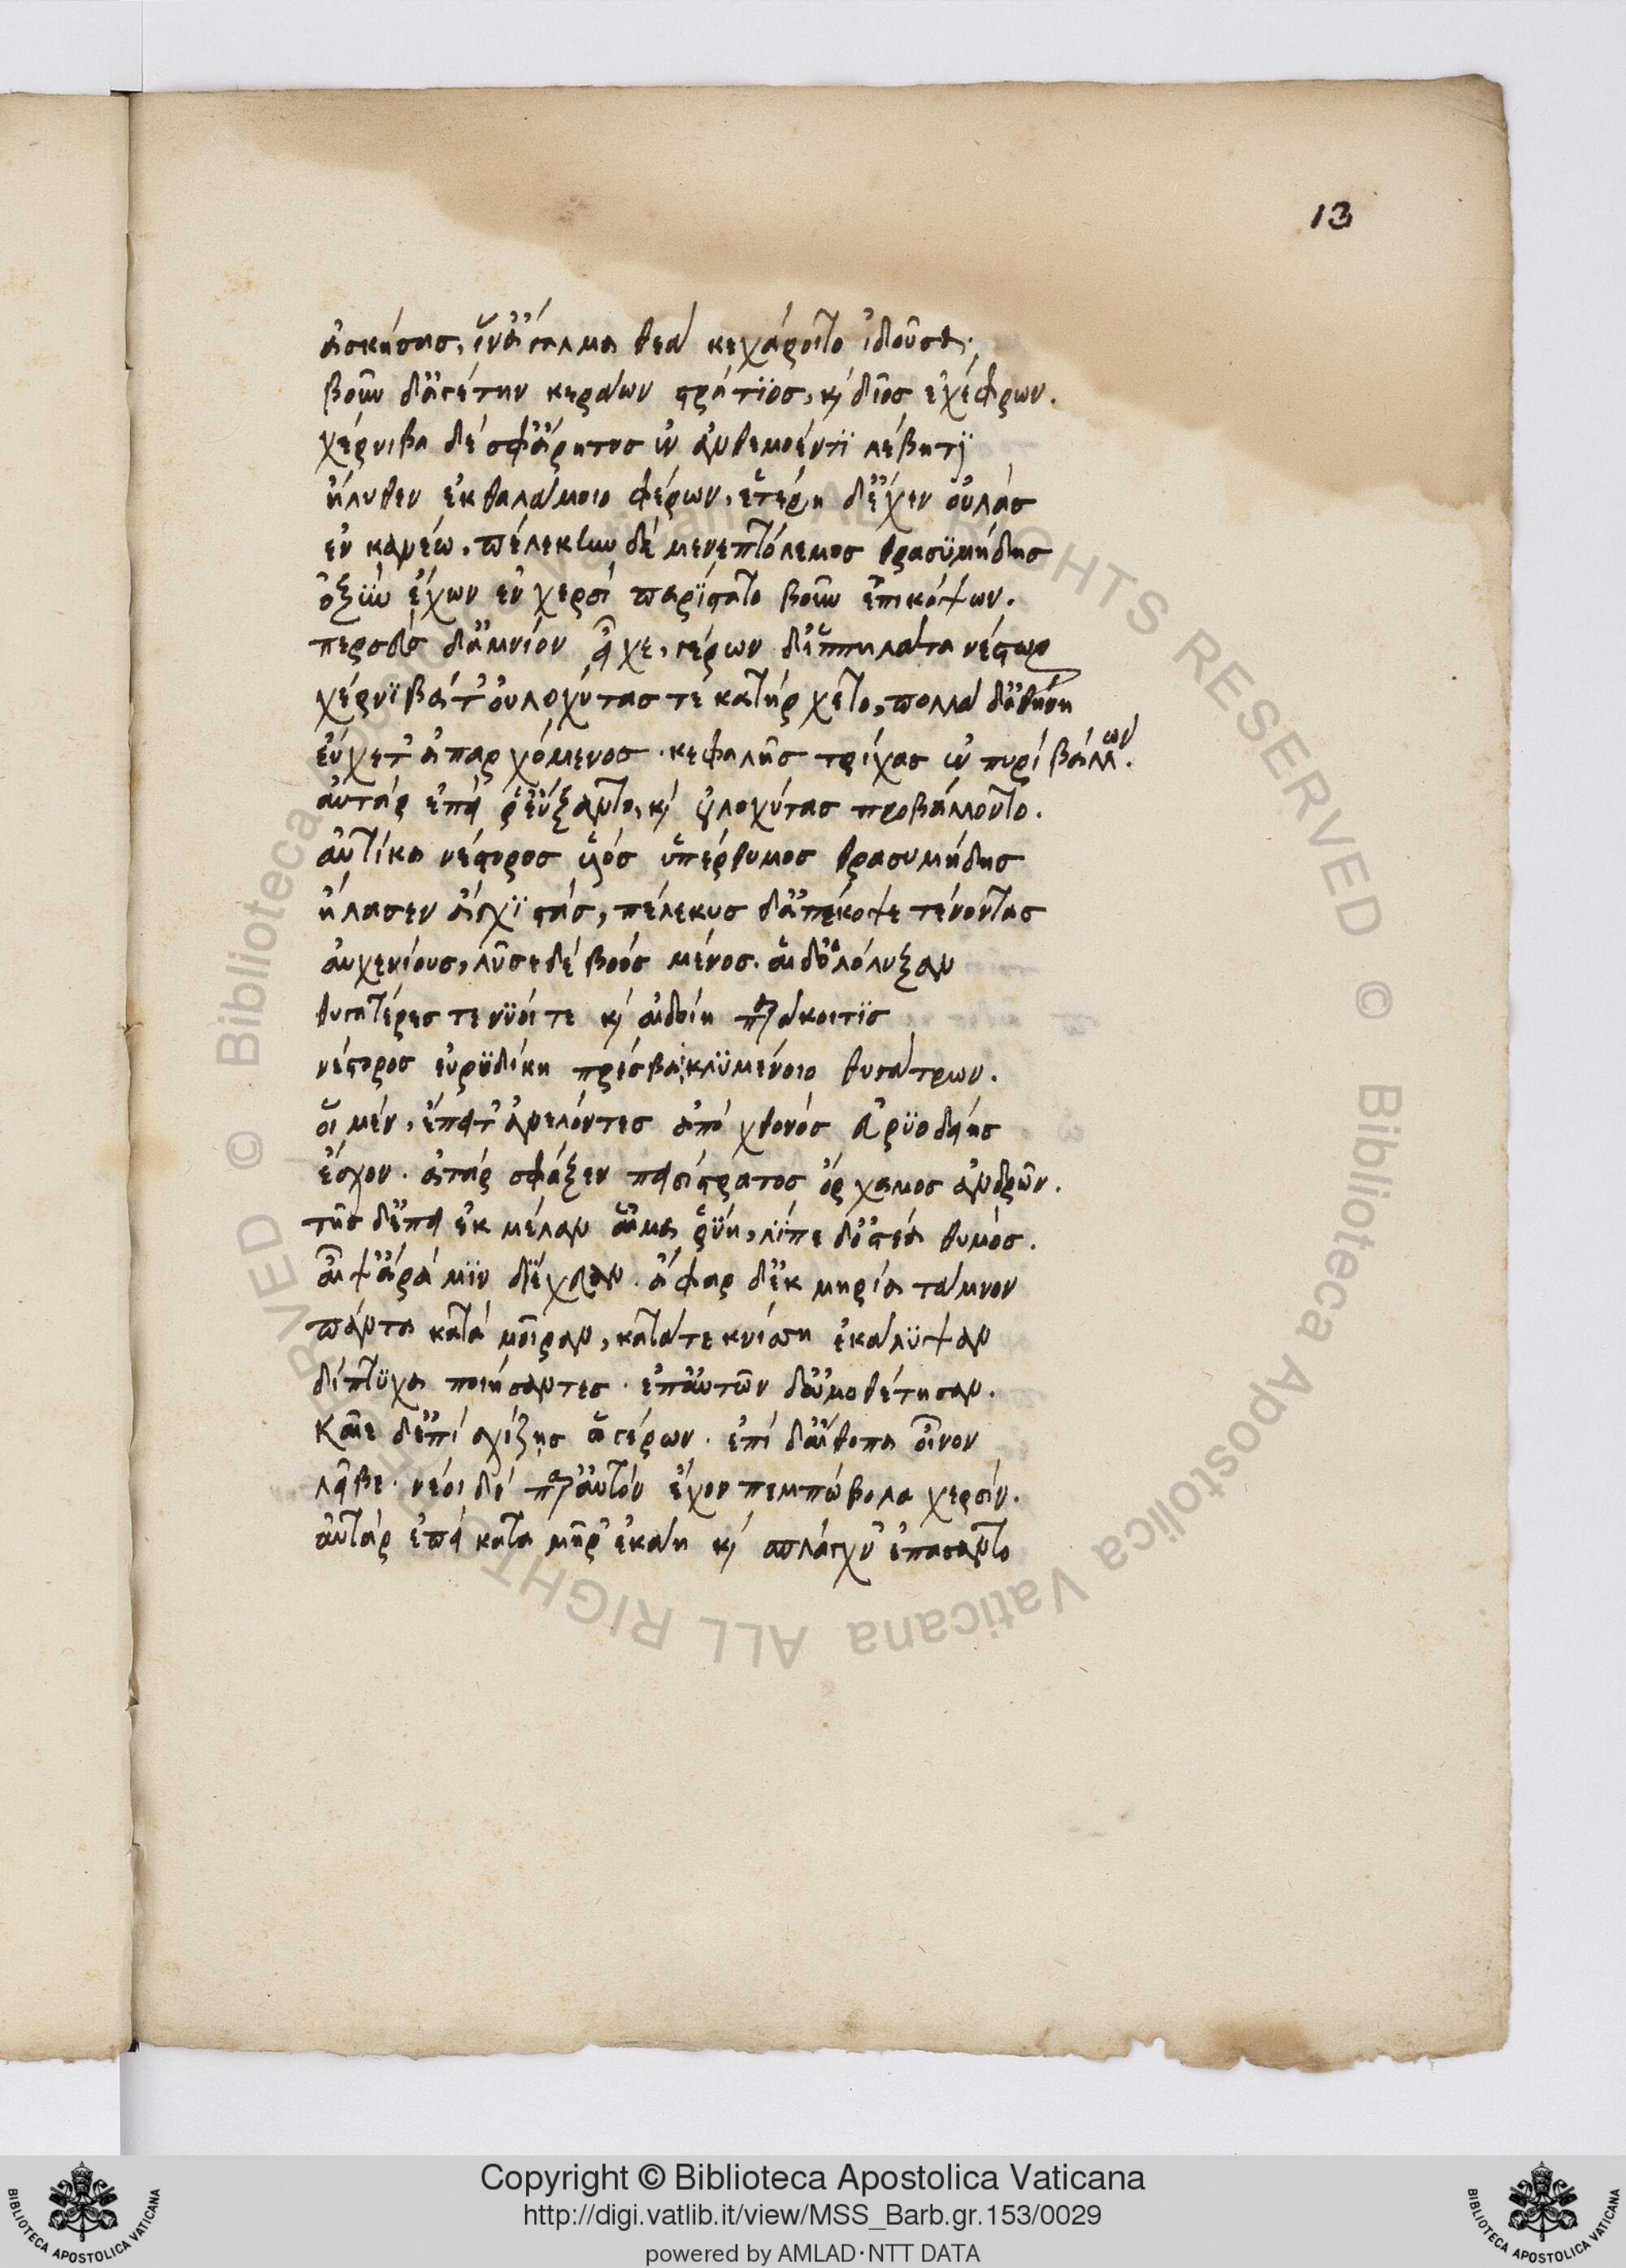 13
ἀσκήσας, ἵν' ἄγαλμα θεὰ κεχάροιτο ἰδοῦσα.
βοῦν δ' ἀγέτην κεράων στράτϊος, καὶ δῖος ἐχέφρων.
χέρνιβα δέ σφ' ἄρητος ἐν ἀνθεμόεντϊ λέβητϊ
ἤλυθεν ἐκ θαλάμοιο φέρων, ἑτέρη δ' ἔχεν οὐλὰς
ἐν κανέω. πέλεκυν δὲ μενεπτόλεμος θρασϋμήδης
ὀξϋν ἔχων ἐν χερσὶ παρΐστατο βοῦν ἐπικόψων.
περσεὺς δ' ἀμνίον εἶχε, γέρων δ' ἱππηλάτα νέστωρ
χέρνϊβά τ' οὐλοχύτας τὲ κατήρχετο, πολλὰ δ' ἀθήνη
εὔχετ' ἀπαρχόμενος. κεφαλῆς τρίχας ἐν πυρὶ βάλλων.
αὐτὰρ ἐπεί ῥ' εὔξαντο, καὶ οὐλοχύτας προβάλλοντο.
αὐτίκα νέστορος υἱὸς ὑπέρθυμος θρασυμήδης
ἤλασεν ἄγχϊ στάς, πέλεκυς δ' ἀπέκοψε τένοντας
αὐχενίους, λῦσε δὲ βοὸς μένος. αἱ δ' ὀλόλυξαν
θυγατέρες τε νϋοί τε καὶ αἰδοίη παράκοιτϊς
νέστορος εὐρϋδίκη πρέσβα κλϋμένοιο θυγάτρων.
οἱ μὲν, ἔπειτ' ἀνελόντες ἀπὸ χθονὸς εὐρϋοδείης
ἔσχον. ἀτὰρ σφάξεν πεισίστρατος ὄρχαμος ἀνδρῶν.
τῆς δ' ἐπεὶ ἐκ μέλαν αἷμα ῥϋη, λΐπε δ' ὀστέα θυμός.
αἶψ' ἄρα μϊν δϊέχευαν. ἄφαρ δ' ἐκ μηρία τάμνον
πάντα κατὰ μοῖραν, κατά τε κνίσῃ ἐκάλϋψαν
δίπτϋχα ποιήσαντες. ἐπ' αὐτῶν δ' ὠμοθέτησαν.
Καῖε δ' ἐπὶ σχίζῃς ὁ γέρων. ἐπὶ δ' αἴθοπα οἶνον
λεῖβε. νέοι δὲ παρ' αὐτὸν ἔχον πεμπώβολα χερσίν.
αὐτὰρ ἐπεὶ κατα μῆρ' ἐκάη καὶ σπλάγχν' ἐπάσαντο
Copyright © Biblioteca Apostolica Vaticana
http://digi.vatlib.it/view/MSS_Barb.gr.153/0029
powered by AMLAD·NTT DATA